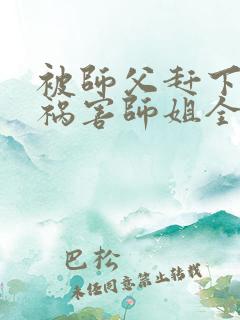 被師父赶下
禍害師姐全
巴松
未经同意禁止转载